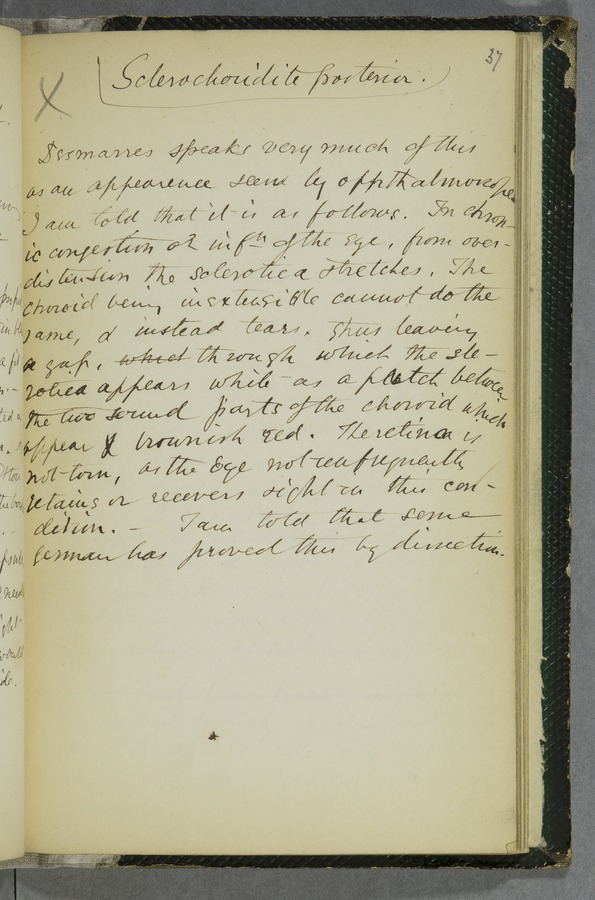 37
Sclerochoroidite posterior.
X
Desmarres speaks very much of this
as an appearence seen by opphthalmoscope
I am told that it is as follows. In chron-
ic congestion or inf.n of the Eye, from over-
distension the sclerotica stretches. The
choroid being inextensible cannot do the
same, & instead tears. Thus leaving
a gap, which through which the scle-
rotica appears white as a patch between
the two sound parts of the choroid which
appear brownish red. The retina is
not torn, as the Eye not unfrequently
retains or recovers sight in this con-
dition. — I am told that some
German has proved this by dissection.